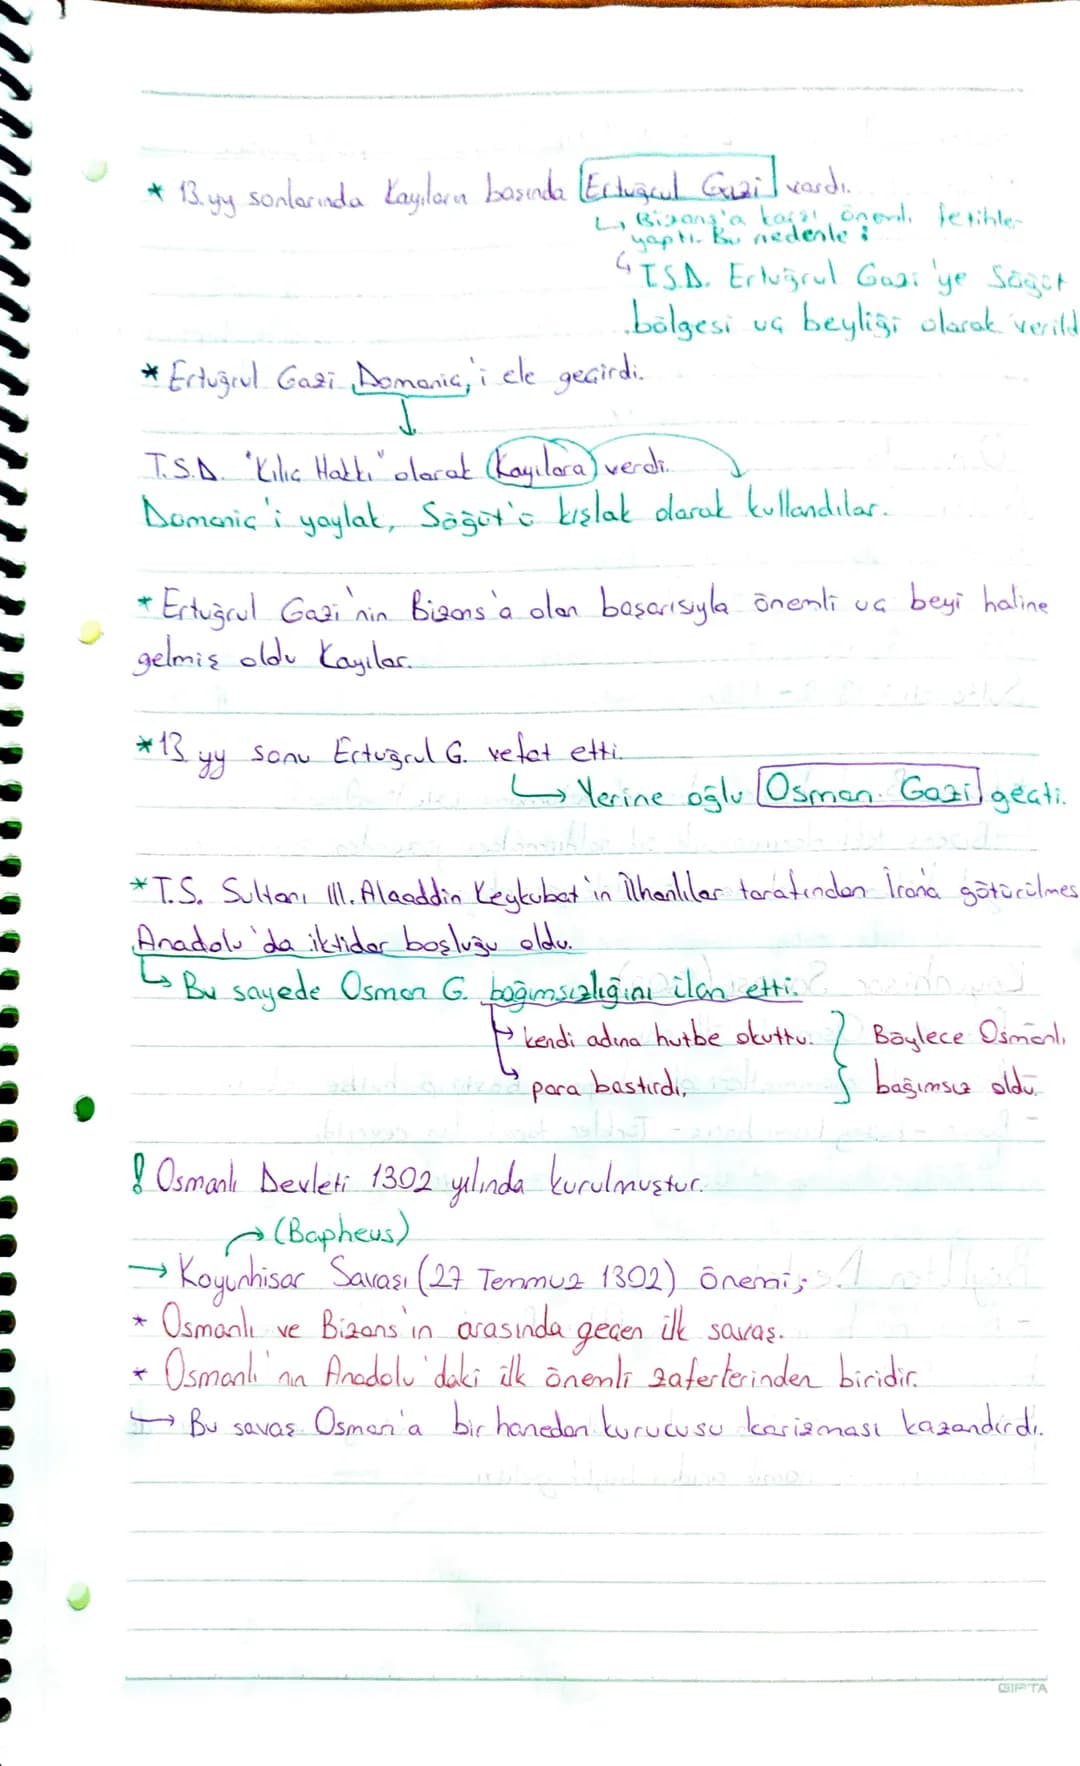 * 13.yy sonlarında Kayıların başında Ertuğrul Gazi vardı.
↳ Bizans'a karşı önemli fetihler
yaptı. Bu nedenle;
↳ T.S.D. Ertuğrul Gazi'ye Söğüt
bölgesi uç beyliği olarak verild
* Ertuğrul Gazi Domaniç'i ele geçirdi.
↓
T.S.D. "Kılıç Hakkı" olarak Kayılara verdi.
Domaniç'i yaylak, Söğüt'ü kışlak olarak kullandılar.
* Ertuğrul Gazi'nin Bizans'a olan başarısıyla önemli uç beyi haline
gelmiş oldu Kayılar.
* 13 yy sonu Ertuğrul G. vefat etti.
↳ Yerine oğlu Osman Gazi geçti.
* T.S. Sultanı III. Alaaddin Keykubat'ın İlhanlılar tarafından İrana götürülmes
Anadolu'da iktidar boşluğu oldu.
↳ Bu sayede Osman G. bağımsızlığını ilan etti.
↳ kendi adına hutbe okuttu. } Böylece Osmanlı
↳ para bastırdı, } bağımsız oldu.
! Osmanlı Devleti 1302 yılında kurulmuştur.
→ (Bapheus)
→ Koyunhisar Savaşı (27 Temmuz 1302) önemi;
* Osmanlı ve Bizans'ın arasında geçen ilk savaş.
* Osmanlı'nın Anadolu'daki ilk önemli zaferlerinden biridir.
↳ Bu savaş Osman'a bir hanedan kurucusu karizması kazandırdı.
GIPTA